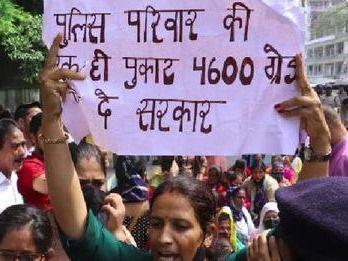 पुलिस परिवार की
एक ही पुकार 4600 ग्रेड
दे सरकार